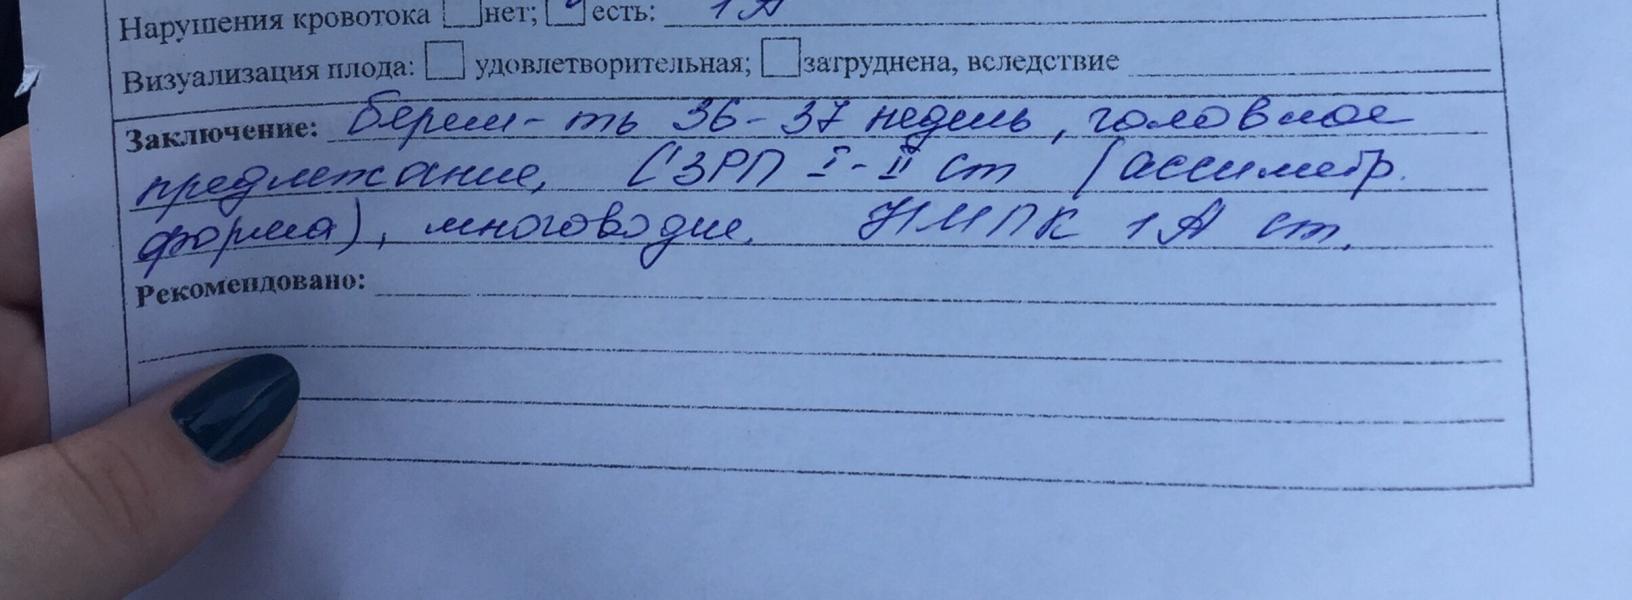 Нарушения кровотока нет; есть: 1А
Визуализация плода: удовлетворительная; загруднена, вследствие
Заключение: берем-ть 36-37 недель, головное
предлежание, СЗРП I-II ст (ассиметр.
форма), многоводие. НМПК 1А ст.
Рекомендовано: